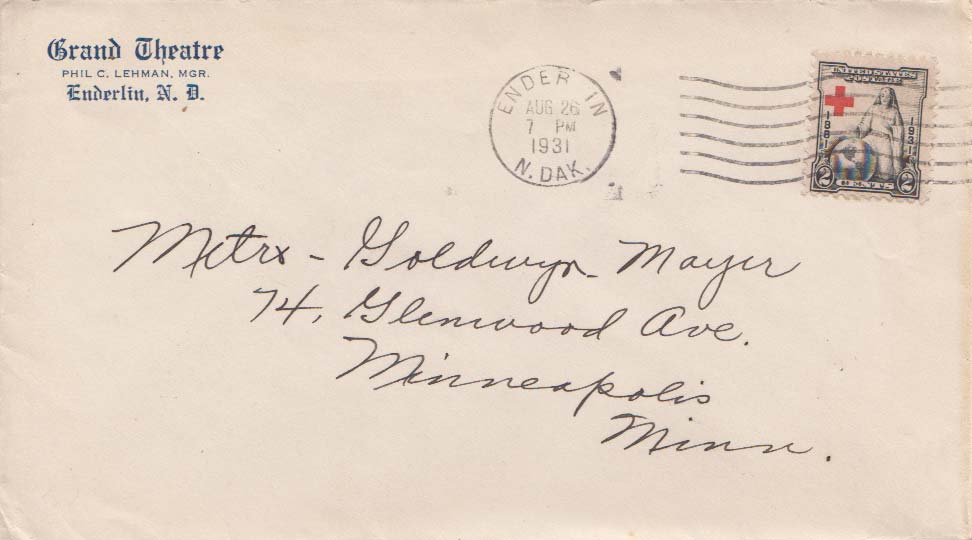 Grand Theatre
PHIL C. LEHMAN, MGR.
Enderlin, N. D.
ENDER IN
AUG 26
7 PM
1931
N. DAK.
UNITED STATES
POSTAGE
1881
1931
2 CENTS 2
Metro - Goldwyn - Mayer
74, Glenwood Ave.
Minneapolis
Minn.